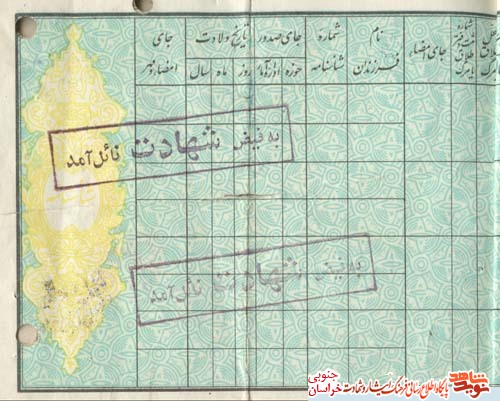 نام فرزندان
شماره شناسنامه
جای صدور
حوزه
تاریخ ولادت
روز
ماه
سال
جای امضاء و مهر
جای امضاء
به فیض شهادت نائل آمد
به فیض شهادت نائل آمد
نوید شاهد
پایگاه اطلاع رسانی فرهنگ ایثار و شهادت
خراسان جنوبی